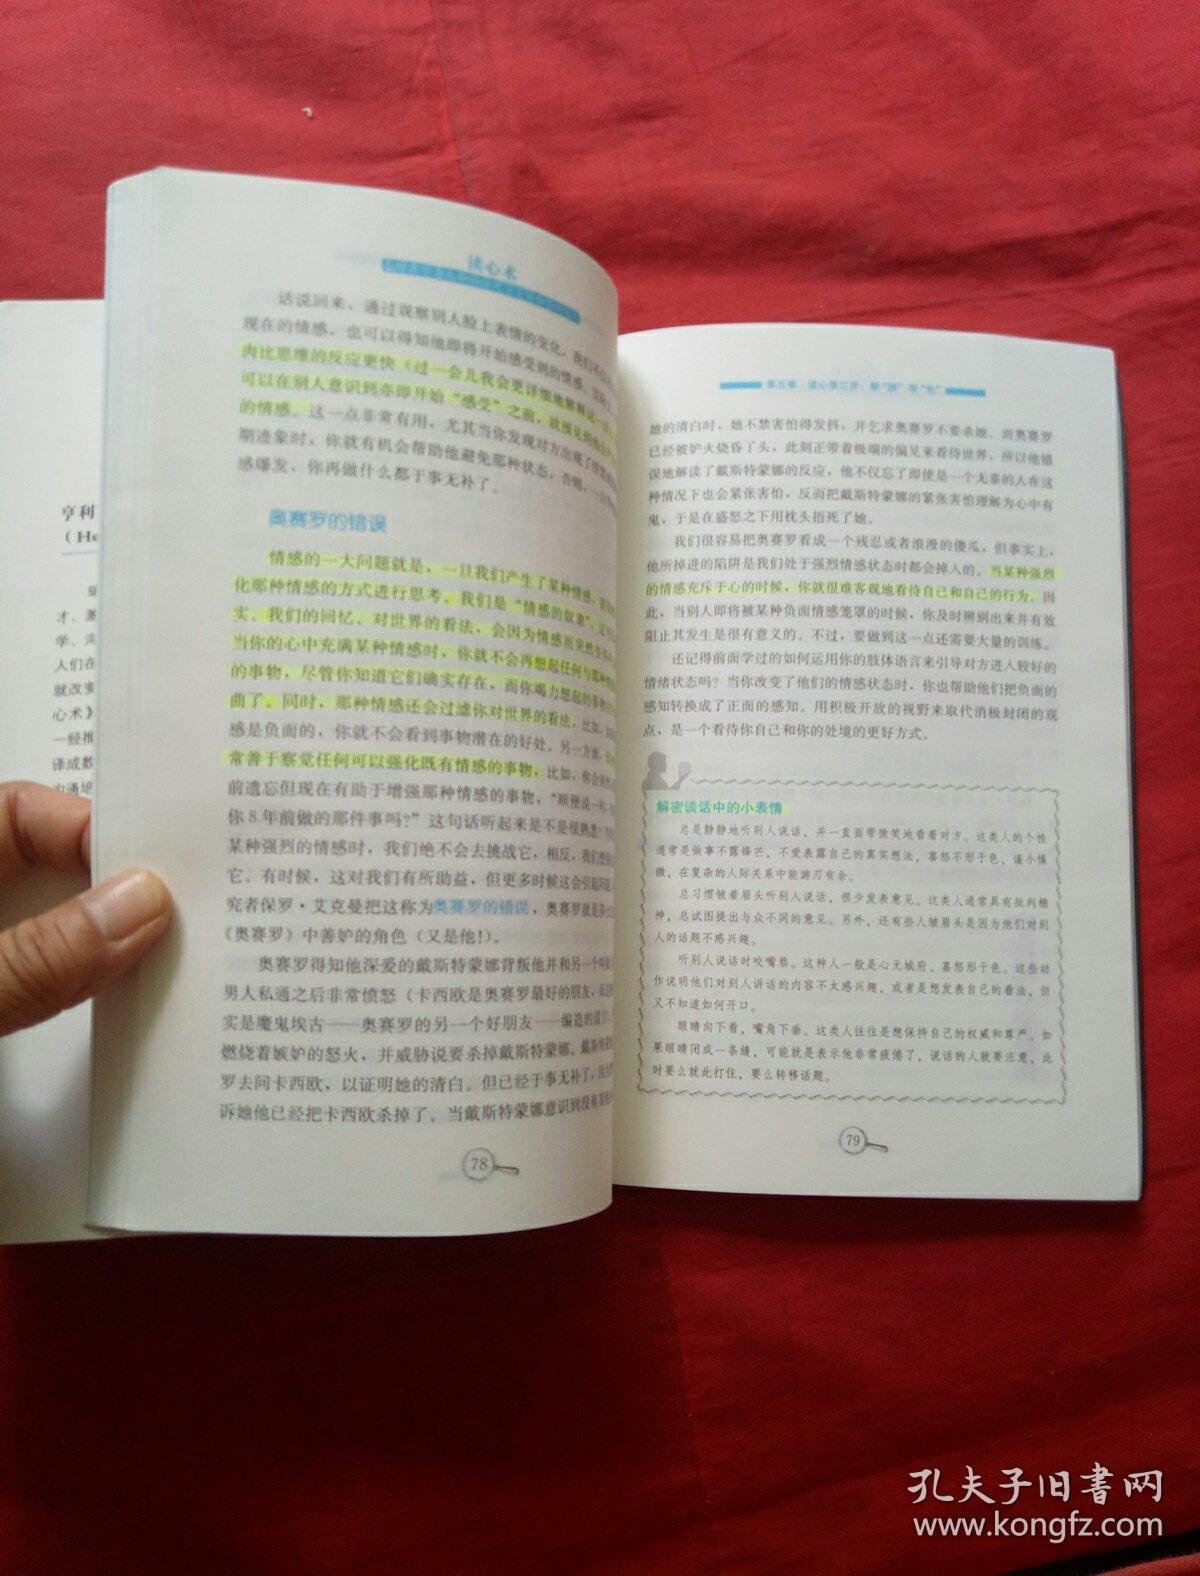 亨利
才、
学、
人们在
就改变
心术》
一经推
译成数
读心术
话说回来，通过观察别人脸上表情的变化，我们不
现在的情感，也可以得知他即将开始感受到的情感，
肉比思维的反应更快（过一会儿我会更详细地解释这一
可以在别人意识到亦即开始“感受”之前，就预见到他
的情感。这一点非常有用，尤其当你发现对方出现了
期迹象时，你就有机会帮助他避免那种状态，否则，一
感爆发，你再做什么都于事无补了。
奥赛罗的错误
情感的一大问题就是，一旦我们产生了某种情感，
化那种情感的方式进行思考。我们是“情感的奴隶”，
实。我们的回忆、对世界的看法，会因为情感而突然
当你的心中充满某种情感时，你就不会再想起任何与那种
的事物，尽管你知道它们确实存在，而你竭力想起的事物
曲了。同时，那种情感还会过滤你对世界的看法，比如，
感是负面的，你就不会看到事物潜在的好处。另一方面，
常善于察觉任何可以强化既有情感的事物，比如，你会突然
前遗忘但现在有助于增强那种情感的事物，“顺便说一句，
你8年前做的那件事吗？”这句话听起来是不是很熟悉？
某种强烈的情感时，我们绝不会去挑战它，相反，我们
它。有时候，这对我们有所助益，但更多时候这会引起问题。
究者保罗·艾克曼把这称为奥赛罗的错误，奥赛罗就是莎士
《奥赛罗》中善妒的角色（又是他！）。
奥赛罗得知他深爱的戴斯特蒙娜背叛他并和另一个叫
男人私通之后非常愤怒（卡西欧是奥赛罗最好的朋友，而这
实是魔鬼埃古——奥赛罗的另一个好朋友——编造的谎言
燃烧着嫉妒的怒火，并威胁说要杀掉戴斯特蒙娜。戴斯特蒙
罗去问卡西欧，以证明她的清白。但已经于事无补了，因为
诉她他已经把卡西欧杀掉了。当戴斯特蒙娜意识到没有
78
第五章 读心第三步：察“颜”观“色”
她的清白时，她不禁害怕得发抖，并乞求奥赛罗不要杀她。而奥赛罗
已经被妒火烧昏了头，此刻正带着极端的偏见来看待世界，所以他错
误地解读了戴斯特蒙娜的反应，他不仅忘了即使是一个无辜的人在这
种情况下也会紧张害怕，反而把戴斯特蒙娜的紧张害怕理解为心中有
鬼，于是在盛怒之下用枕头捂死了她。
我们很容易把奥赛罗看成一个残忍或者浪漫的傻瓜，但事实上，
他所掉进的陷阱是我们处于强烈情感状态时都会掉入的。当某种强烈
的情感充斥于心的时候，你就很难客观地看待自己和自己的行为。因
此，当别人即将被某种负面情感笼罩的时候，你及时辨别出来并有效
阻止其发生是很有意义的。不过，要做到这一点还需要大量的训练。
还记得前面学过的如何运用你的肢体语言来引导对方进入较好的
情绪状态吗？当你改变了他们的情感状态时，你也帮助他们把负面的
感知转换成了正面的感知。用积极开放的视野来取代消极封闭的观
点，是一个看待你自己和你的处境的更好方式。
解密谈话中的小表情
总是静静地听别人说话，并一直面带微笑地看着对方。这类人的个性
通常是做事不露锋芒，不爱表露自己的真实想法，喜怒不形于色，谨小慎
微，在复杂的人际关系中能游刃有余。
总习惯皱着眉头听别人说话，很少发表意见。这类人通常具有批判精
神，总试图提出与众不同的意见。另外，还有些人皱眉头是因为他们对别
人的话题不感兴趣。
听别人说话时咬嘴唇。这种人一般是心无城府、喜怒形于色。这些动
作说明他们对别人讲话的内容不太感兴趣，或者是想发表自己的看法，但
又不知道如何开口。
眼睛向下看，嘴角下垂。这类人往往是想保持自己的权威和尊严。如
果眼睛闭成一条缝，可能就是表示他非常疲倦了，说话的人就要注意，此
时要么就此打住，要么转移话题。
79
孔夫子旧书网
www.kongfz.com